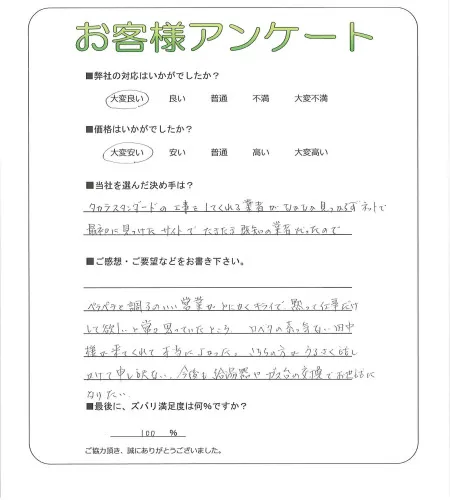 お客様アンケート
■弊社の対応はいかがでしたか？
大変良い 良い 普通 不満 大変不満
■価格はいかがでしたか？
大変安い 安い 普通 高い 大変高い
■当社を選んだ決め手は？
タカラスタンダードの工事をしてくれる業者がなかなか見つからずネットで
最初に見つけたサイトでたまたま愛知の業者だったので
■ご感想・ご要望などをお書き下さい。
ペラペラと調子のいい営業がとにかくキライで、黙って仕事だけ
して欲しいと常々思っていたところ、口ベタの素っ気ない田中
様が来てくれて本当によかった。こちらの方がうるさく話し
かけて申し訳ない。今後も給湯器やガス台の交換でお世話に
なりたい。
■最後に、ズバリ満足度は何%ですか？
100 %
ご協力頂き、誠にありがとうございました。